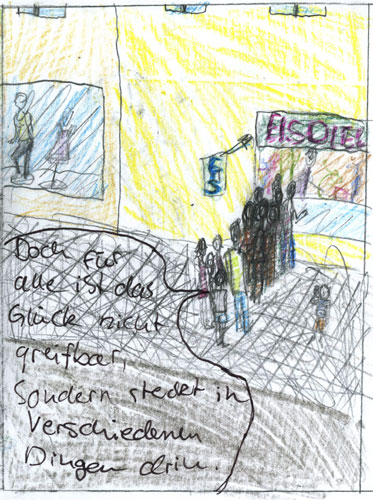 EISDIEL
EIS
Doch für
alle ist das
Glück nicht
greifbar,
Sondern steckt in
Verschiedenen
Dingen drin.